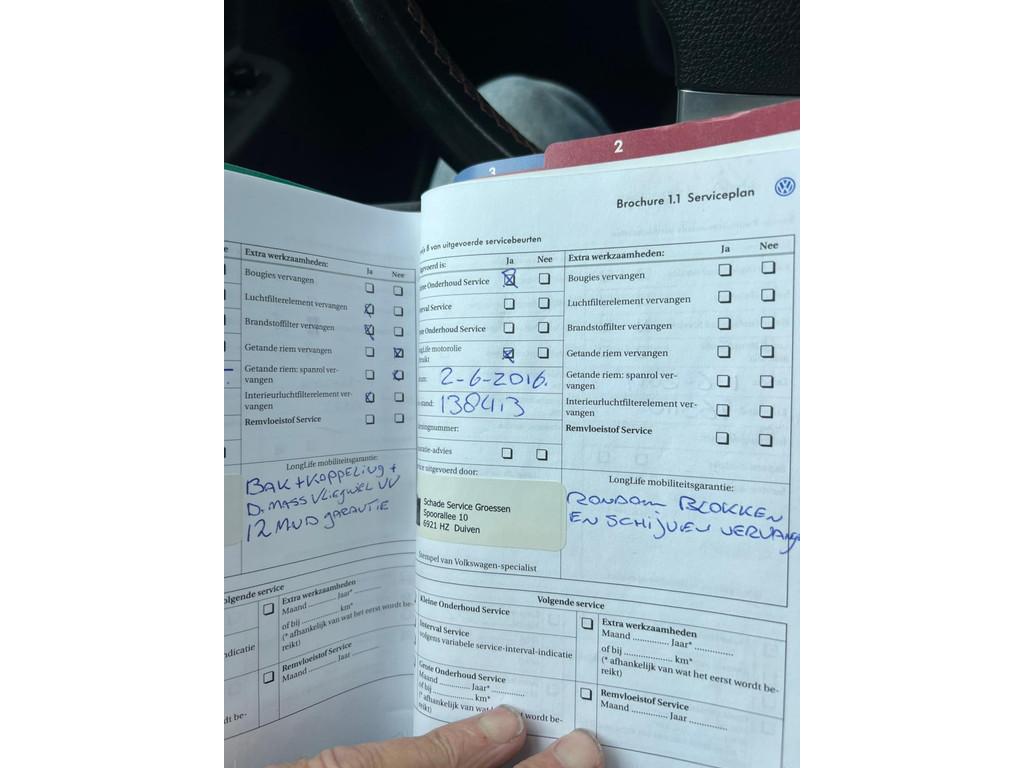 3
2
Brochure 1.1 Serviceplan
Extra werkzaamheden:
Ja
Nee
Bougies vervangen
Luchtfilterelement vervangen
Brandstoffilter vervangen
Getande riem vervangen
Getande riem: spanrol ver-
vangen
Interieurluchtfilterelement ver-
vangen
Remvloeistof Service
LongLife mobiliteitsgarantie:
BAK + KOPPELING +
D. MASS VLIEGWEL VV
12 MND GARANTIE
olgende service
Extra werkzaamheden
Maand .......... Jaar* ..........
of bij .................. km*
(* afhankelijk van wat het eerst wordt be-
reikt)
ndicatie
Remvloeistof Service
Maand .......... Jaar ..........
dt be-
8 van uitgevoerde servicebeurten
gevoerd is:
Ja
Nee
ine Onderhoud Service
erval Service
ote Onderhoud Service
ngLife motorolie
ruikt
2-6-2016.
stand: 138413
eningnummer:
ratie-advies
ice uitgevoerd door:
Schade Service Groessen
Spoorallee 10
6921 HZ Duiven
Stempel van Volkswagen-specialist
Extra werkzaamheden:
Ja
Nee
Bougies vervangen
Luchtfilterelement vervangen
Brandstoffilter vervangen
Getande riem vervangen
Getande riem: spanrol ver-
vangen
Interieurluchtfilterelement ver-
vangen
Remvloeistof Service
LongLife mobiliteitsgarantie:
RONDOM BLOKKEN
EN SCHIJVEN VERVANGE
Volgende service
Kleine Onderhoud Service
Interval Service
volgens variabele service-interval-indicatie
Grote Onderhoud Service
Maand .......... Jaar* ............
of bij ............... km*
(* afhankelijk van wat wordt be-
Extra werkzaamheden
Maand .............. Jaar* ...............
of bij .................... km*
(* afhankelijk van wat het eerst wordt be-
reikt)
Remvloeistof Service
Maand .............. Jaar ...............